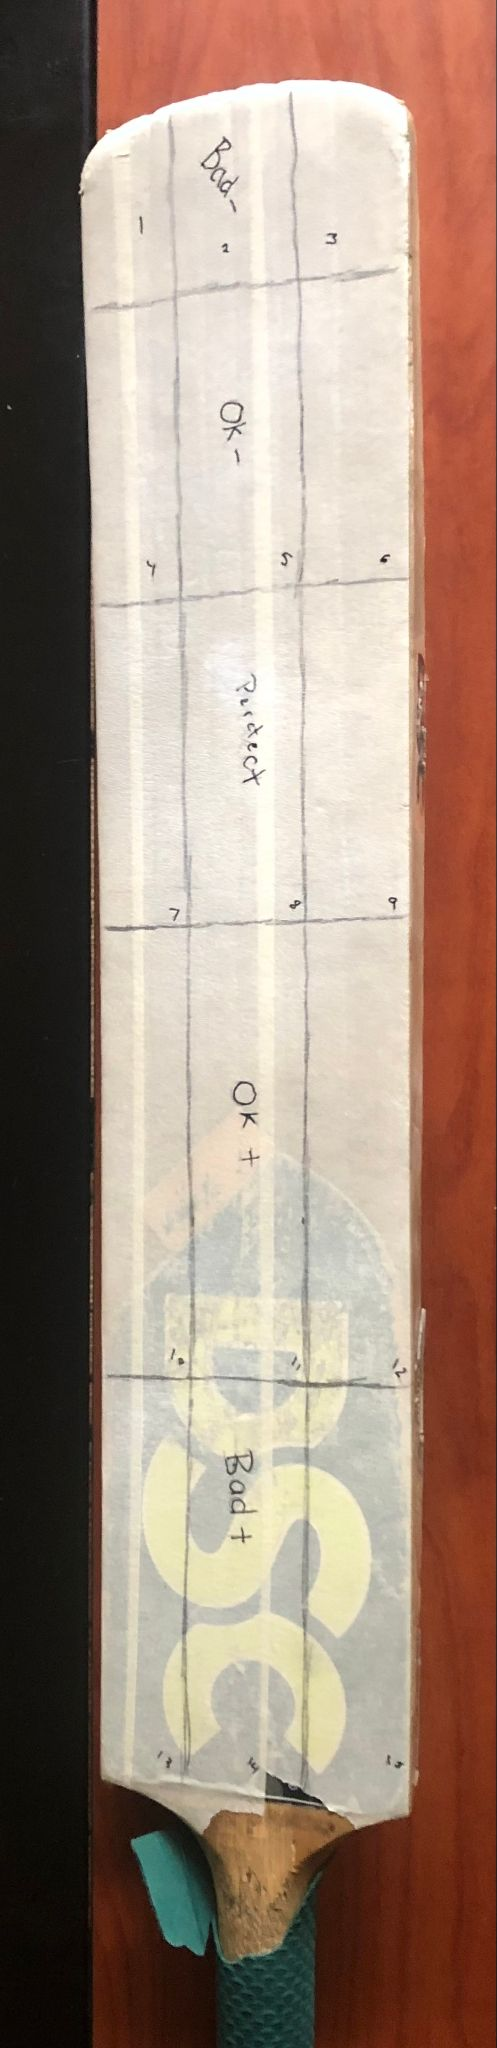 Bad-
1 2 3
OK-
4 5 6
Perdect
7 8 9
OK +
10 11 12
DSC
Bad+
13 14 15